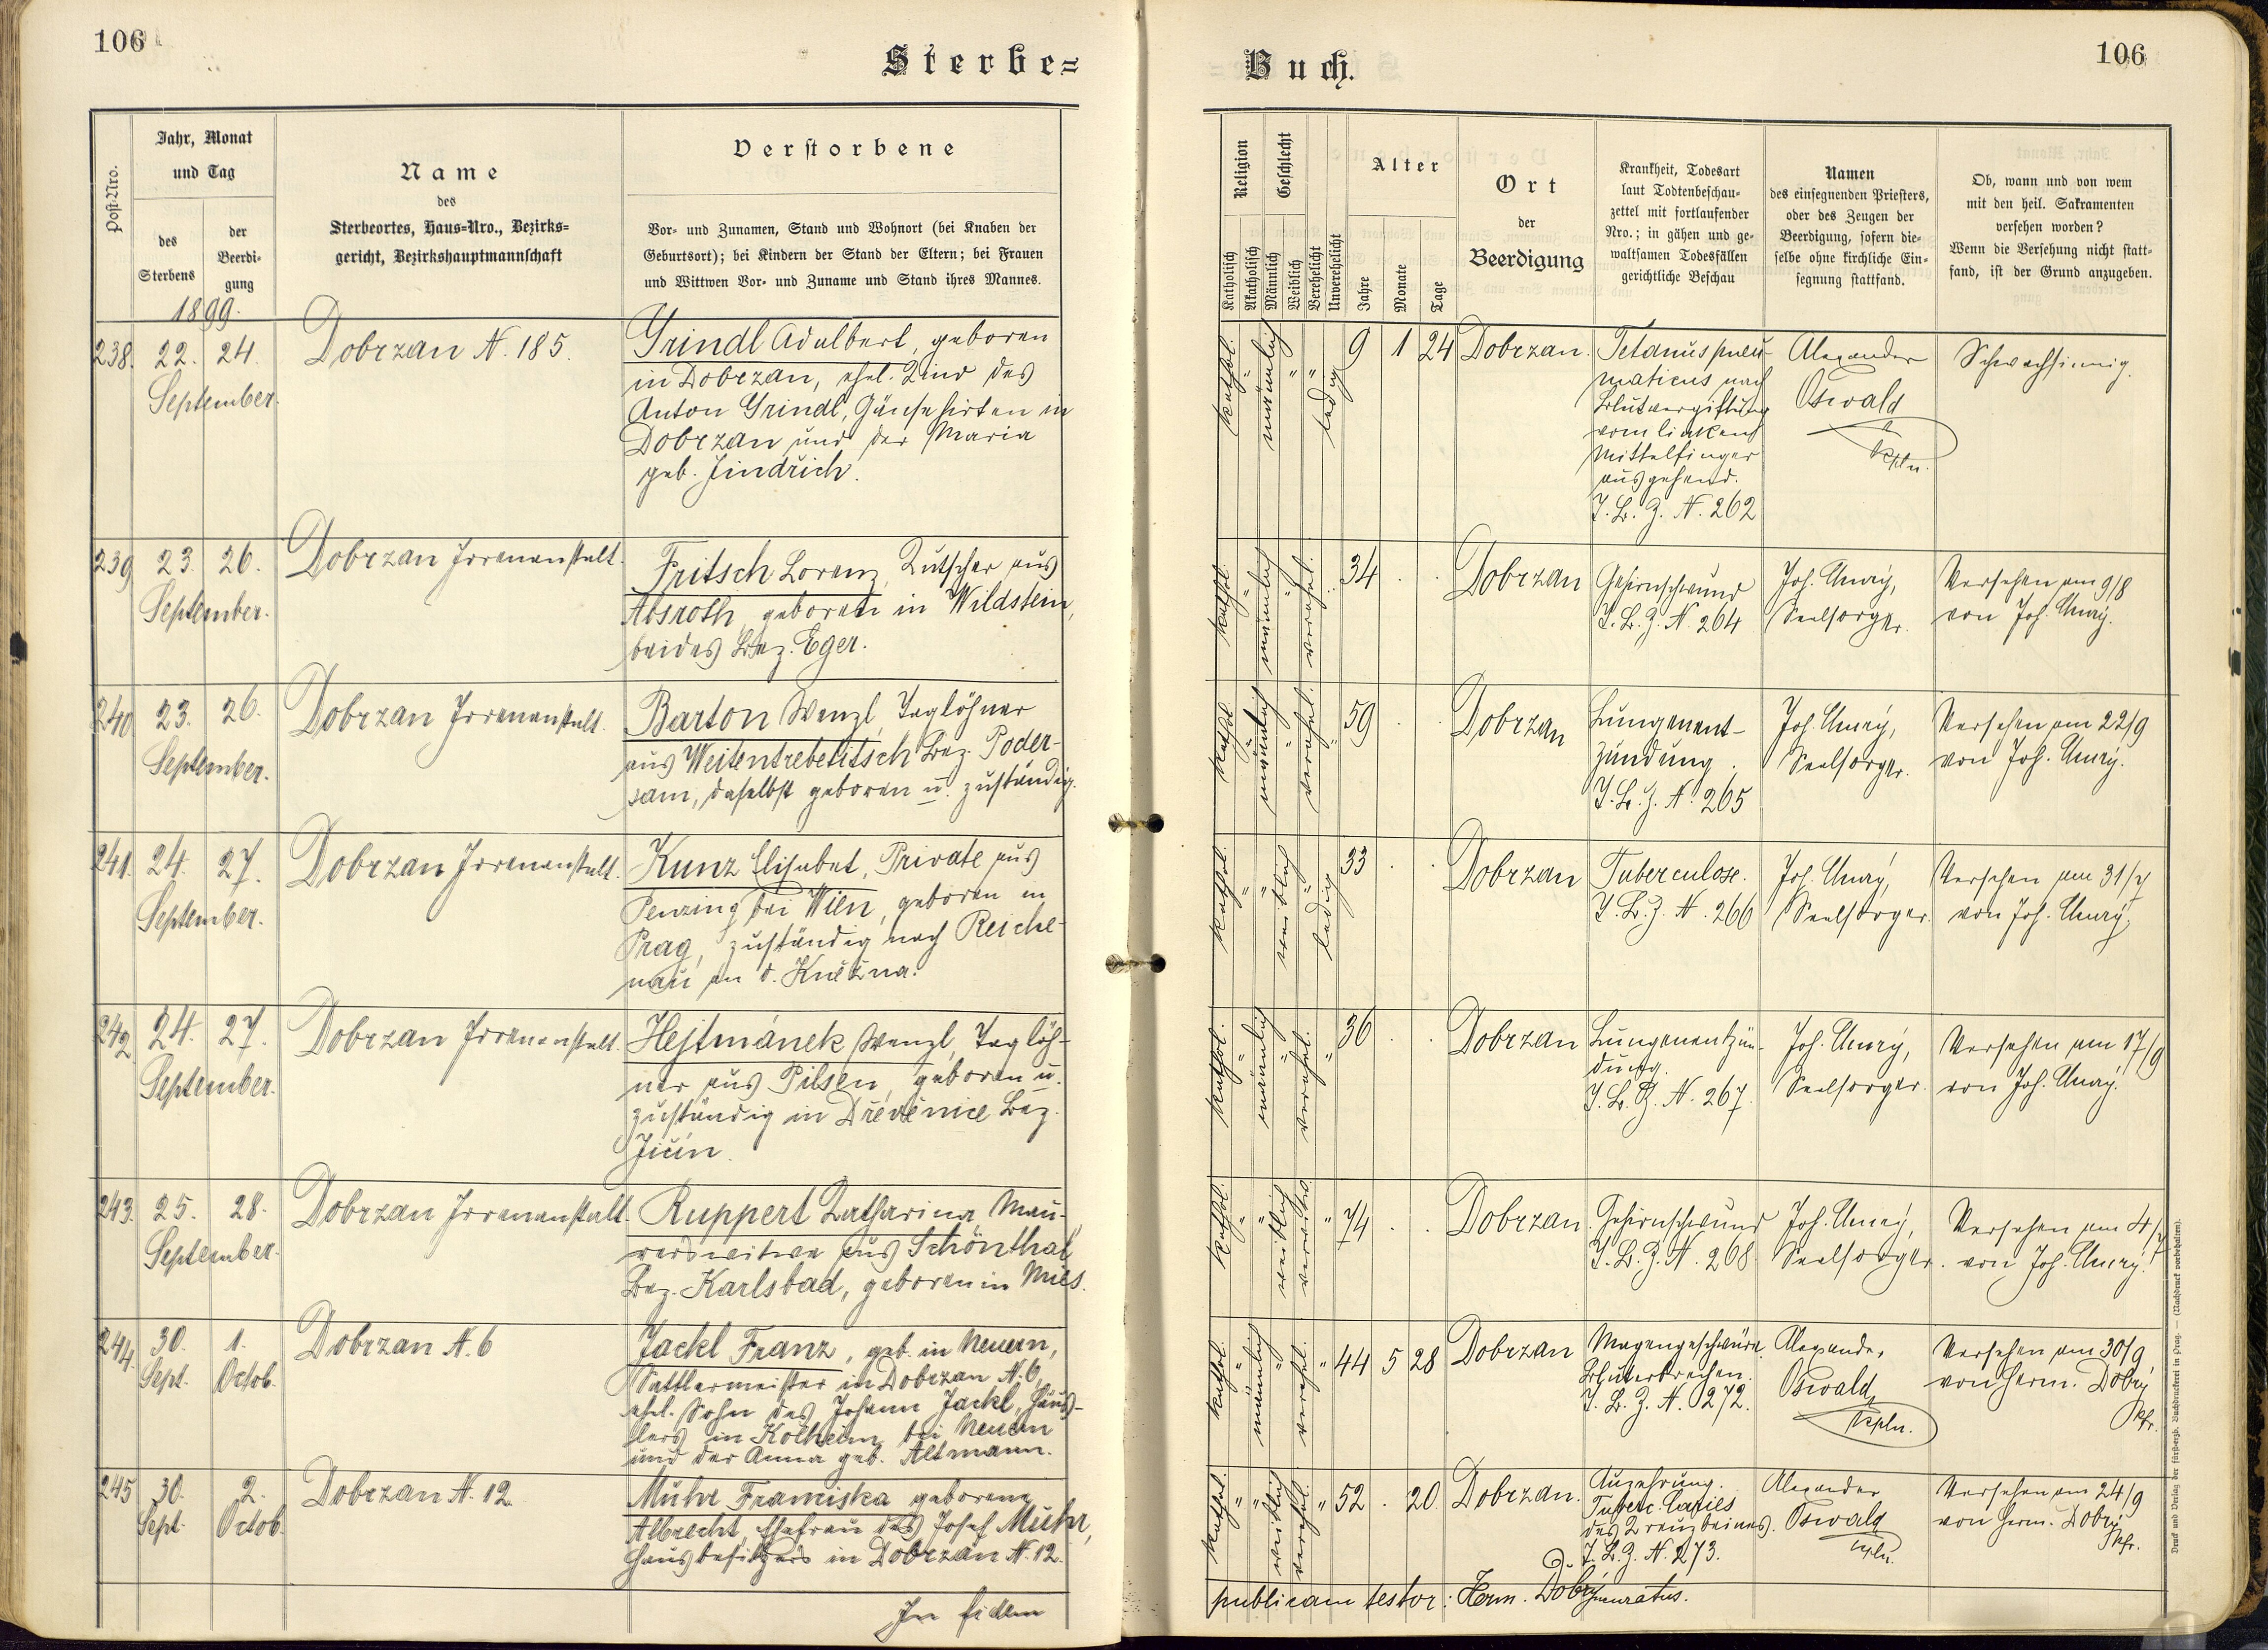 106
Sterbe=
Post-Nro.
Jahr, Monat
und Tag
des
Sterbens
der
Beerdi-
gung
Name
des
Sterbeortes, Haus=Nro., Bezirks=
gericht, Bezirkshauptmannschaft
Verstorbene
Vor- und Zunamen, Stand und Wohnort (bei Knaben der
Geburtsort); bei Kindern der Stand der Eltern; bei Frauen
und Wittwen Vor- und Zuname und Stand ihres Mannes.
1899.
238. 22. 24.
September.
Dobrzan N. 185.
Grindl Adalbert, geboren
in Dobrzan, ehel. Kind des
Anton Grindl, Gänsehirten in
Dobrzan und der Maria
geb. Jindřich.
239 23. 26.
September.
Dobrzan Irrenanstalt.
Fritsch Lorenz, Kutscher aus
Absroth, geboren in Wildstein,
beides Bez. Eger.
240 23. 26.
September.
Dobrzan Irrenanstalt.
Barton Wenzl, Taglöhner
aus Weitentrebetitsch Bez. Poder-
sam, daselbst geboren u. zuständig.
241. 24. 27.
September.
Dobrzan Irrenanstalt.
Kunz Elisabet, Private aus
Penzing bei Wien, geboren in
Prag, zuständig nach Reiche-
nau an d. Kněžna.
242 24. 27.
September.
Dobrzan Irrenanstalt.
Hejtmánek Wenzl, Taglöh-
ner aus Pilsen, geboren u.
zuständig in Dřevěnice Bez.
Jičín.
243. 25. 28.
September.
Dobrzan Irrenanstalt.
Ruppert Katharina, Mau-
rerswitwe aus Schönthal
Bez. Karlsbad, geboren in Mies.
244. 30. 1.
Sept. Octob.
Dobrzan N. 6
Jackl Franz, geb. in Neuern,
Sattlermeister in Dobrzan N. 6,
ehel. Sohn des Johann Jackl, Häus-
lers in Kolheim bei Neuern
und der Anna geb. Altmann.
245 30. 2.
Sept. Octob.
Dobrzan N. 12.
Muhr Franciska geborene
Albrecht, Ehefrau des Josef Muhr,
Hausbesitzers in Dobrzan N. 12.
In fidem
106
Buch.
Religion
Katholisch
Akatholisch
Geschlecht
Männlich
Weiblich
Verehelicht
Unverehelicht
Alter
Jahre
Monate
Tage
Ort
der
Beerdigung
Krankheit, Todesart
laut Todtenbeschau-
zettel mit fortlaufender
Nro.; in gähen und ge-
waltsamen Todesfällen
gerichtliche Beschau
Namen
des einsegnenden Priesters,
oder des Zeugen der
Beerdigung, sofern die-
selbe ohne kirchliche Ein-
segnung stattfand.
Ob, wann und von wem
mit den heil. Sakramenten
versehen worden?
Wenn die Versehung nicht statt-
fand, ist der Grund anzugeben.
kathol. " männlich " " ledig
9 1 24
Dobrzan.
Tetanus pneu-
maticus nach
Blutvergiftung
vom linken
Mittelfinger
ausgehend.
T. B. Z. N. 262
Alexander
Oswald
Kpln.
Schwachsinnig.
kathol. " männlich " verehel. "
34 . .
Dobrzan
Gehirnschwund
T. B. Z. N. 264
Seelsorger.
Versehen am 9/8
kathol. " männlich " verehel. "
59 . .
Dobrzan
Lungenent-
zündung.
T. B. Z. N. 265
Seelsorger.
Versehen am 22/9
kathol. " " weiblich " ledig
33 . .
Dobrzan
Tuberculose.
T. B. Z. N. 266
Seelsorger.
Versehen am 31/7
kathol. " männlich " verehel. "
36 . .
Dobrzan
Lungenentzün-
dung.
T. B. Z. N. 267.
Seelsorger.
Versehen am 17/9
kathol. " " weiblich verwitw. "
74 . .
Dobrzan.
Gehirnschwund
T. B. Z. N. 268
Seelsorger.
Versehen am 4/7
kathol. " männlich " verehel. "
44 5 28
Dobrzan
Magengeschwüre.
Bluterbrechen.
T. B. Z. N. 272.
Alexander
Oswald
Kpln.
Versehen am 30/9
von Herm. Dobrý
Pfr.
kathol. " " weiblich verehel. "
52 . 20.
Dobrzan.
Auzehrung.
Tuberc. Caries
des Kreuzbeines.
T. B. Z. N. 273.
Alexander
Oswald
Kpln.
Versehen am 24/9
von Herm. Dobrý
Pfr.
publicam testor: Herm. Dobrý
Druck und Verlag der fürst-erzb. Buchdruckerei in Prag. — (Nachdruck vorbehalten).